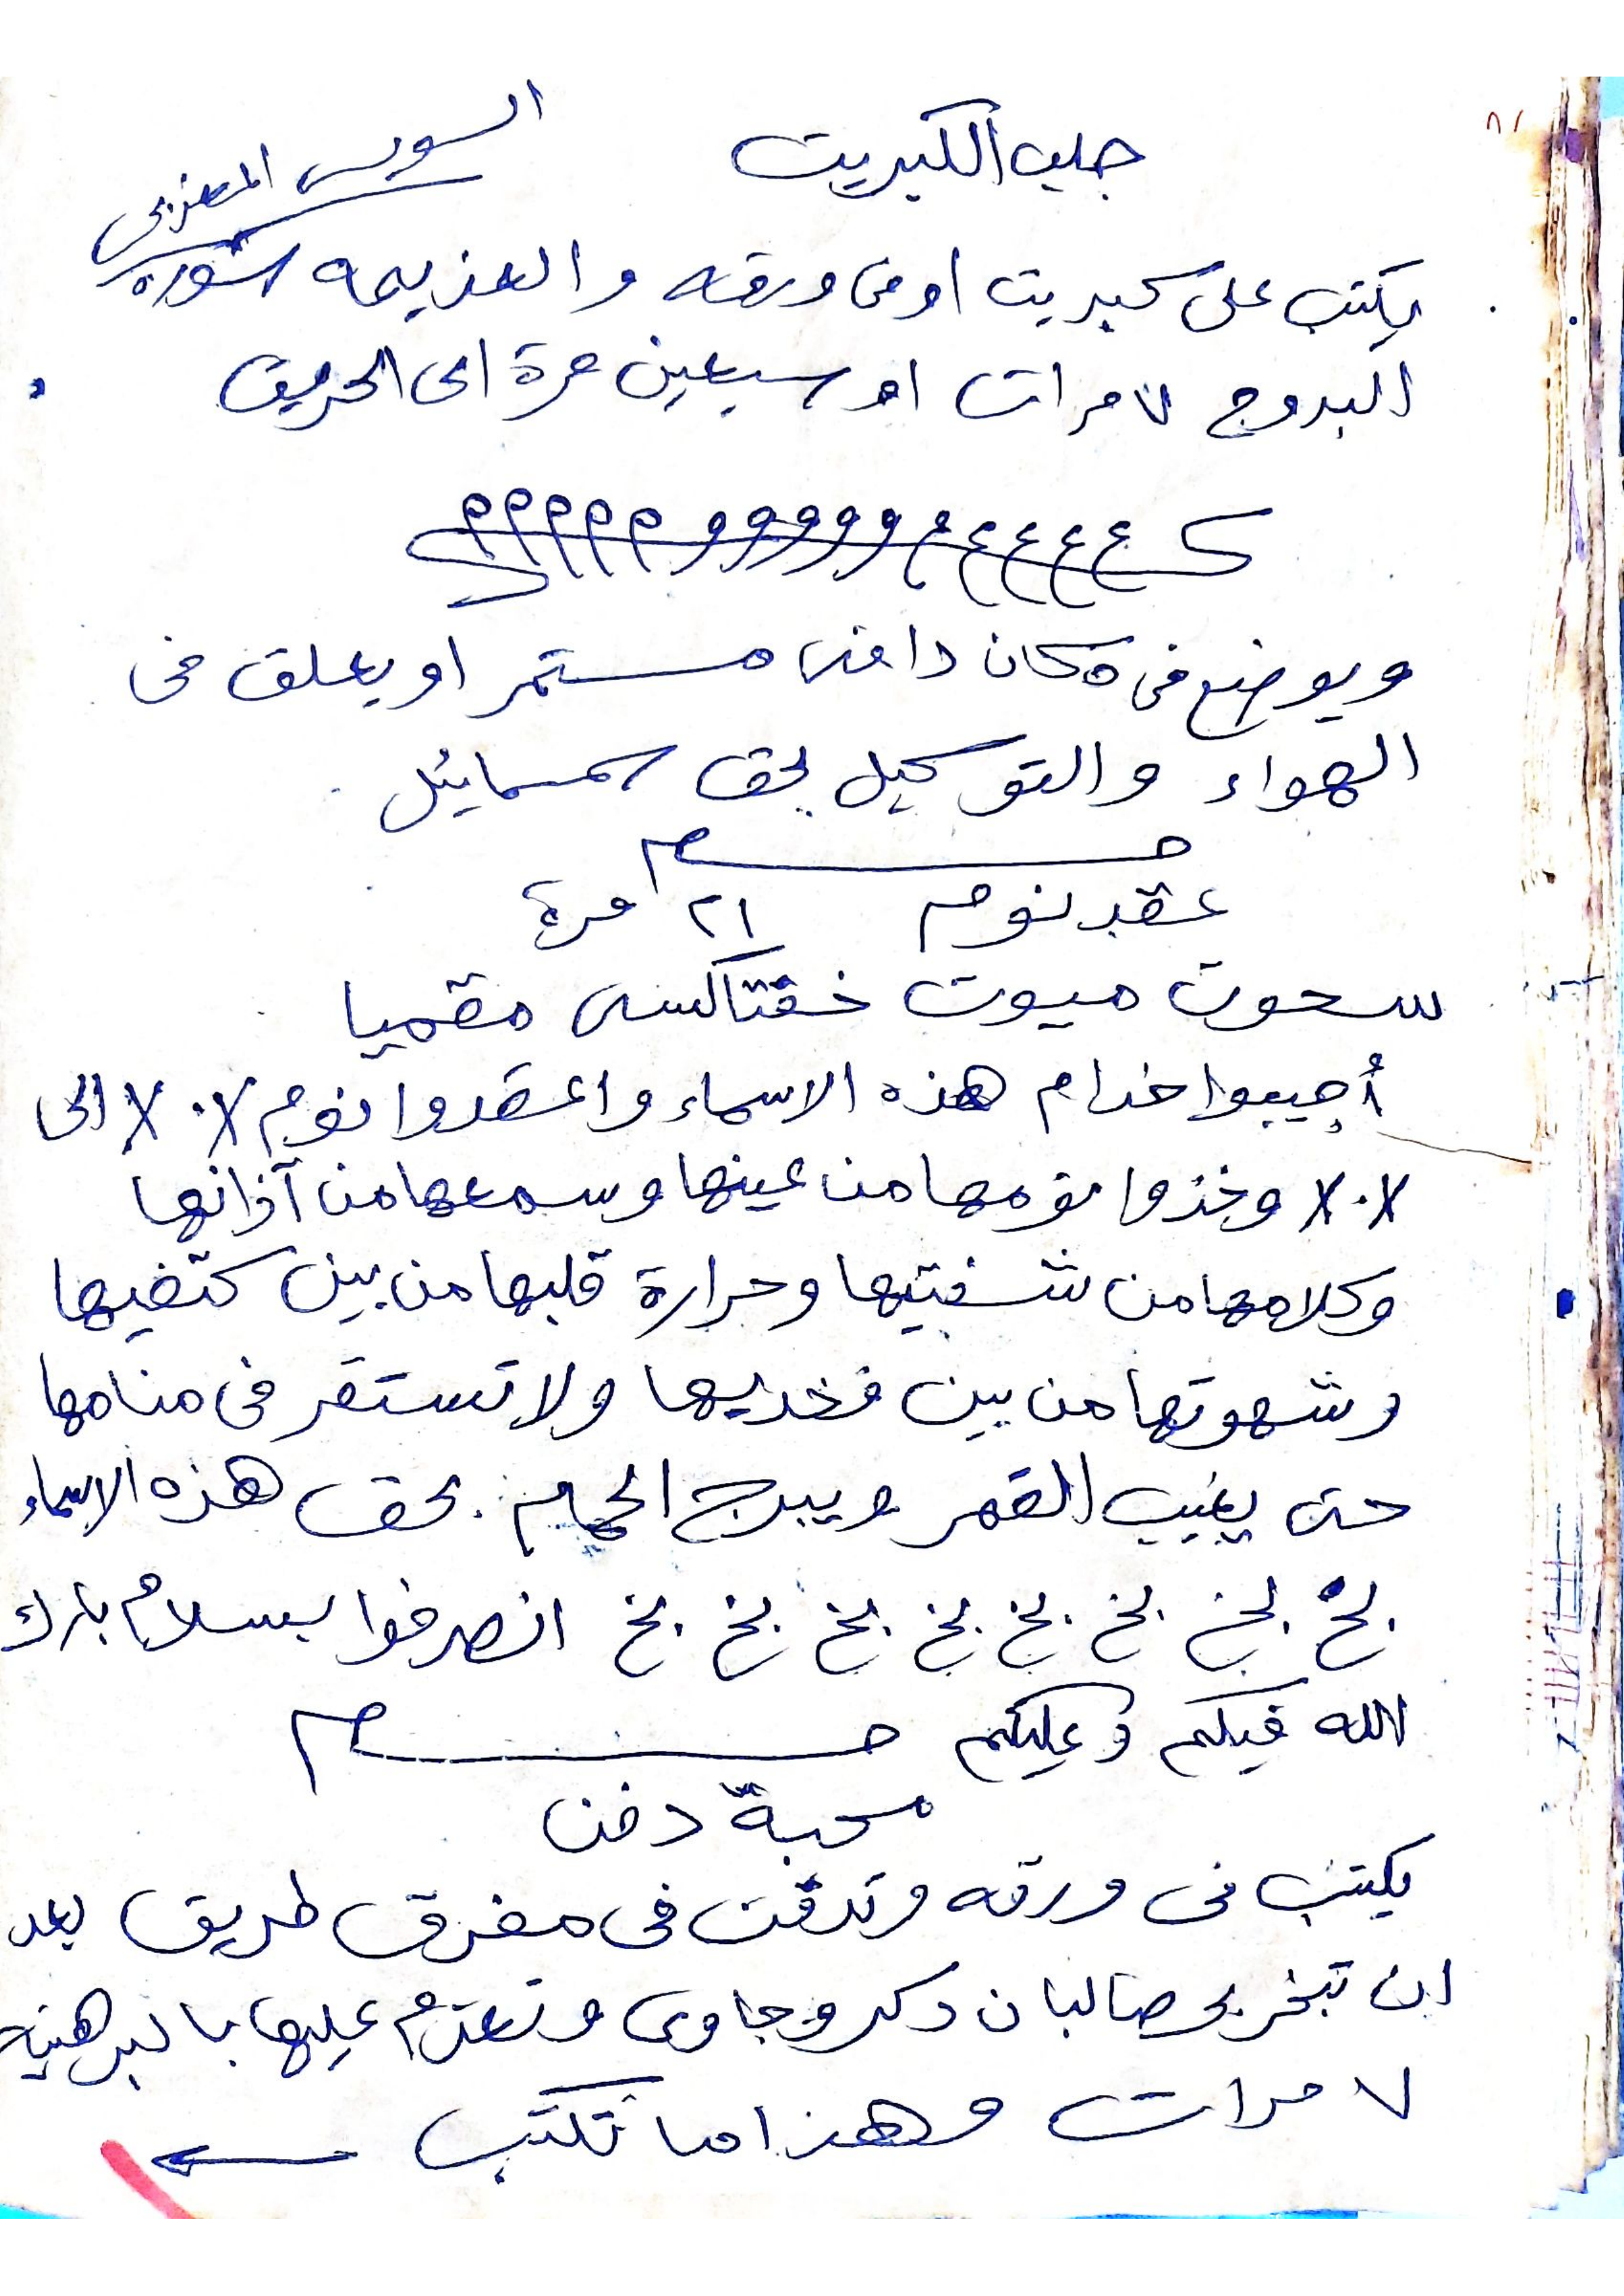 جلب الكبريت
السوسى المغربى
يكتب على كبريت او فى ورقه والعزيمه سورة
البروج ٧ مرات او سبعين مرة الى الحريق
ويوضع فى مكان دافئ مستمر او يعلق فى
الهواء والتوكيل بحق سمسمائيل
عقد نوم ٢١ مرة
سحوت ميوت خفتاكسى مقميا
أجيبوا خدام هذه الاسماء واعقدوا نوم X٠X الى
X٠X وخذوا نومها من عينها وسمعها من آذانها
وكلامها من شفتيها وحرارة قلبها من بين كتفيها
وشهوتها من بين فخديها ولا تستقر فى منامها
حتى يغيب القمر ويبرج الحمام . بحق هذه الاسماء
بخ بخ بخ بخ بخ بخ بخ بخ انصرفوا بسلام بارك
الله فيكم وعليكم
محبة دفن
يكتب فى ورقه وتدفن فى مفرق طريق بعد
ان تبخر بحصالبان دكر وجاوى وتعزم عليها بالبرهتيه
٧ مرات وهذا ما تكتب